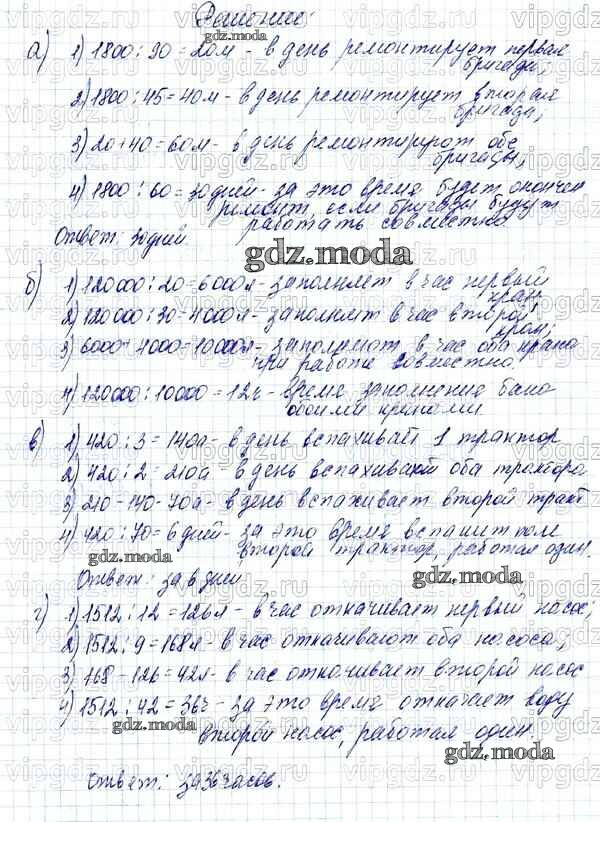 Решение:
а) 1) 1800 : 90 = 20м - в день ремонтирует первая
бригада;
2) 1800 : 45 = 40м - в день ремонтирует вторая
бригада;
3) 20 + 40 = 60м - в день ремонтируют обе
бригады;
4) 1800 : 60 = 30 дней - за это время будет окончен
ремонт, если бригады будут
работать совместно.
Ответ: 30 дней.
gdz.moda
б) 1) 120000 : 20 = 6000л - заполняет в час первый
кран;
2) 120000 : 30 = 4000л - заполняет в час второй
кран;
3) 6000 + 4000 = 10000л - заполняют в час оба крана
при работе совместно.
4) 120000 : 10000 = 12ч - время заполнения бака
обоими кранами.
в) 1) 420 : 3 = 140а - в день вспахивает 1 трактор
2) 420 : 2 = 210а - в день вспахивают оба трактора
3) 210 - 140 = 70а - в день вспахивает второй тракт
4) 420 : 70 = 6 дней - за это время вспашит поле
gdz.moda второй трактор, работая один.
Ответ: за 6 дней
gdz.moda
г) 1) 1512 : 12 = 126л - в час откачивает первый насос;
2) 1512 : 9 = 168л - в час откачивают оба насоса;
3) 168 - 126 = 42л - в час откачивает второй насос
4) 1512 : 42 = 36ч - за это время откачает воду
gdz.moda второй насос, работая один.
gdz.moda
Ответ: за 36 часов.